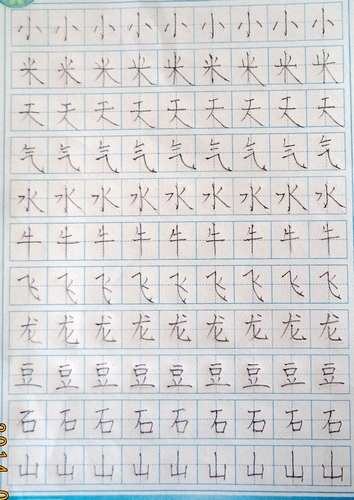 小 小 小 小 小 小 小 小 小
米 米 米 米 米 米 米 米 米
天 天 天 天 天 天 天 天 天
气 气 气 气 气 气 气 气 气
水 水 水 水 水 水 水 水 水
牛 牛 牛 牛 牛 牛 牛 牛 牛
飞 飞 飞 飞 飞 飞 飞 飞 飞
龙 龙 龙 龙 龙 龙 龙 龙 龙
豆 豆 豆 豆 豆 豆 豆 豆 豆
石 石 石 石 石 石 石 石 石
山 山 山 山 山 山 山 山 山